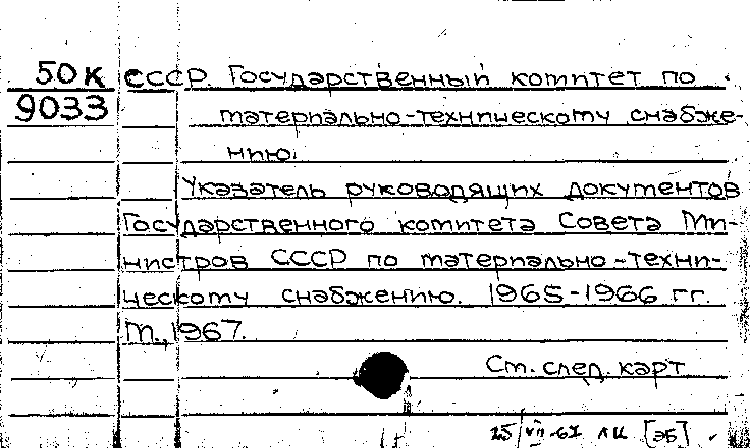 50К СССР. Государственный комитет по
9033 материально-техническому снабже-
нию.
Указатель руководящих документов
Государственного комитета Совета Ми-
нистров СССР по материально-техни-
ческому снабжению. 1965-1966 гг.
М., 1967.
См. след. карт
25/VII-67 [ЭБ]